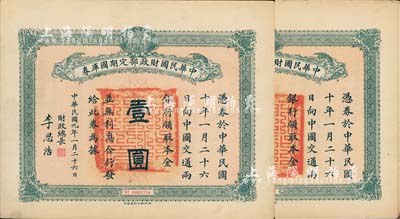 中華民國財政部定期國庫券
憑券於中華民國
十年一月二十六
日向中國交通兩
銀行領取本金
壹圓
並無利息合行發
給此券為據
財政總長
李思浩
中華民國九年一月二十六日
中華民國財
憑券於中華民國
十年一月二十六
日向中國交通兩
銀行領取本金